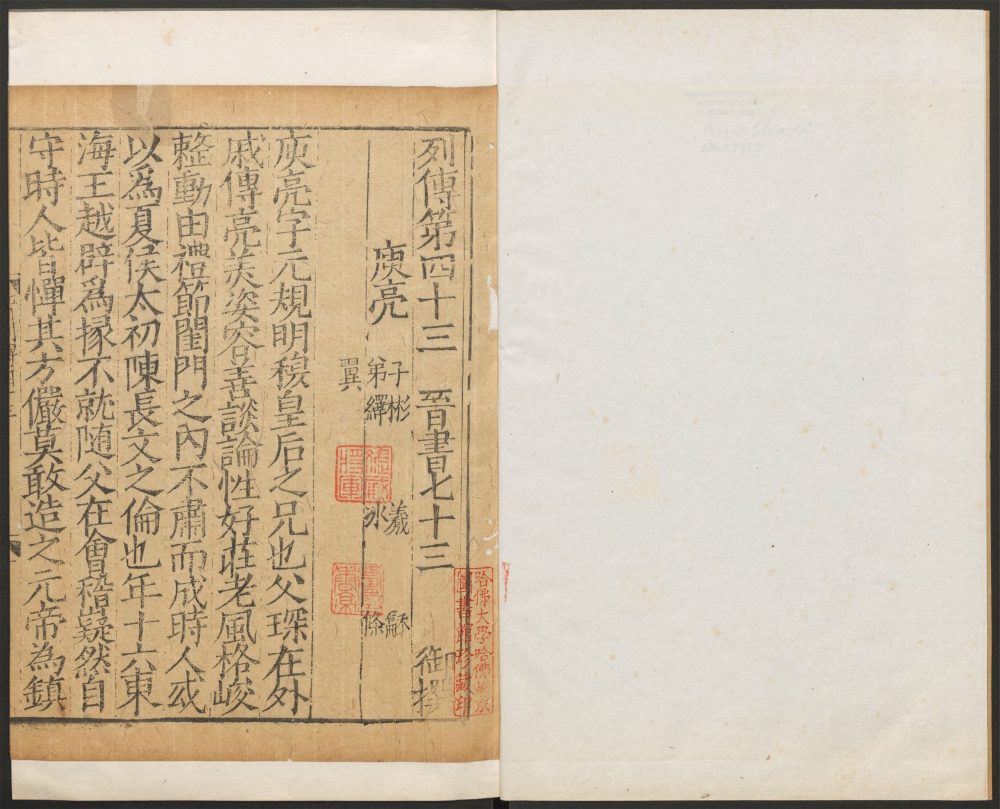 列傳第四十三 晉書七十三 御撰
庾亮 子彬 羲 龢
弟繹 冰 條
翼
庾亮字元規明穆皇后之兄也父琛在外
戚傳亮美姿容善談論性好莊老風格峻
整動由禮節閨門之內不肅而成時人或
以爲夏侯太初陳長文之倫也年十六東
海王越辟爲掾不就隨父在會稽嶷然自
守時人皆憚其方儼莫敢造之元帝為鎮
哈佛大學哈佛燕京
圖書館珍藏印